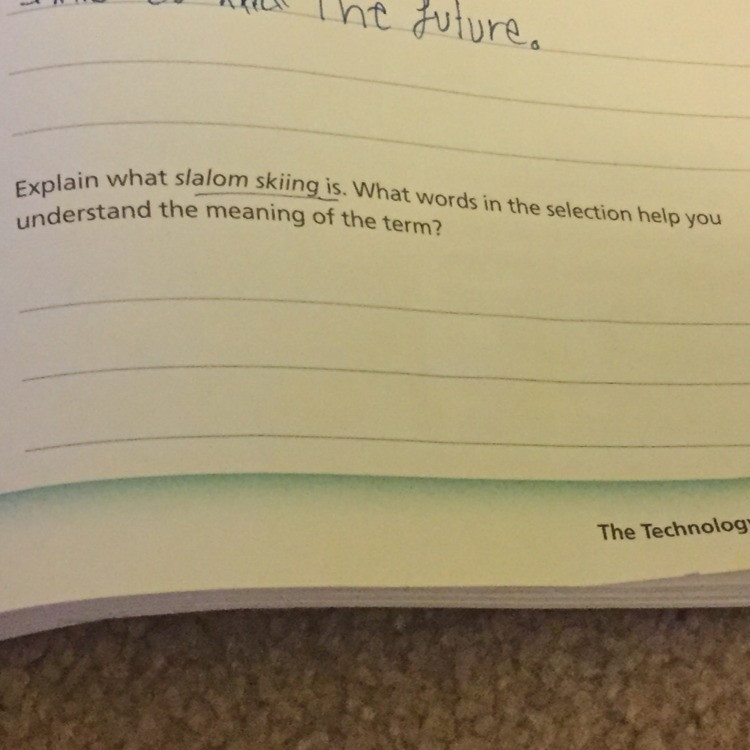 The future.
Explain what slalom skiing is. What words in the selection help you
understand the meaning of the term?
The Technology